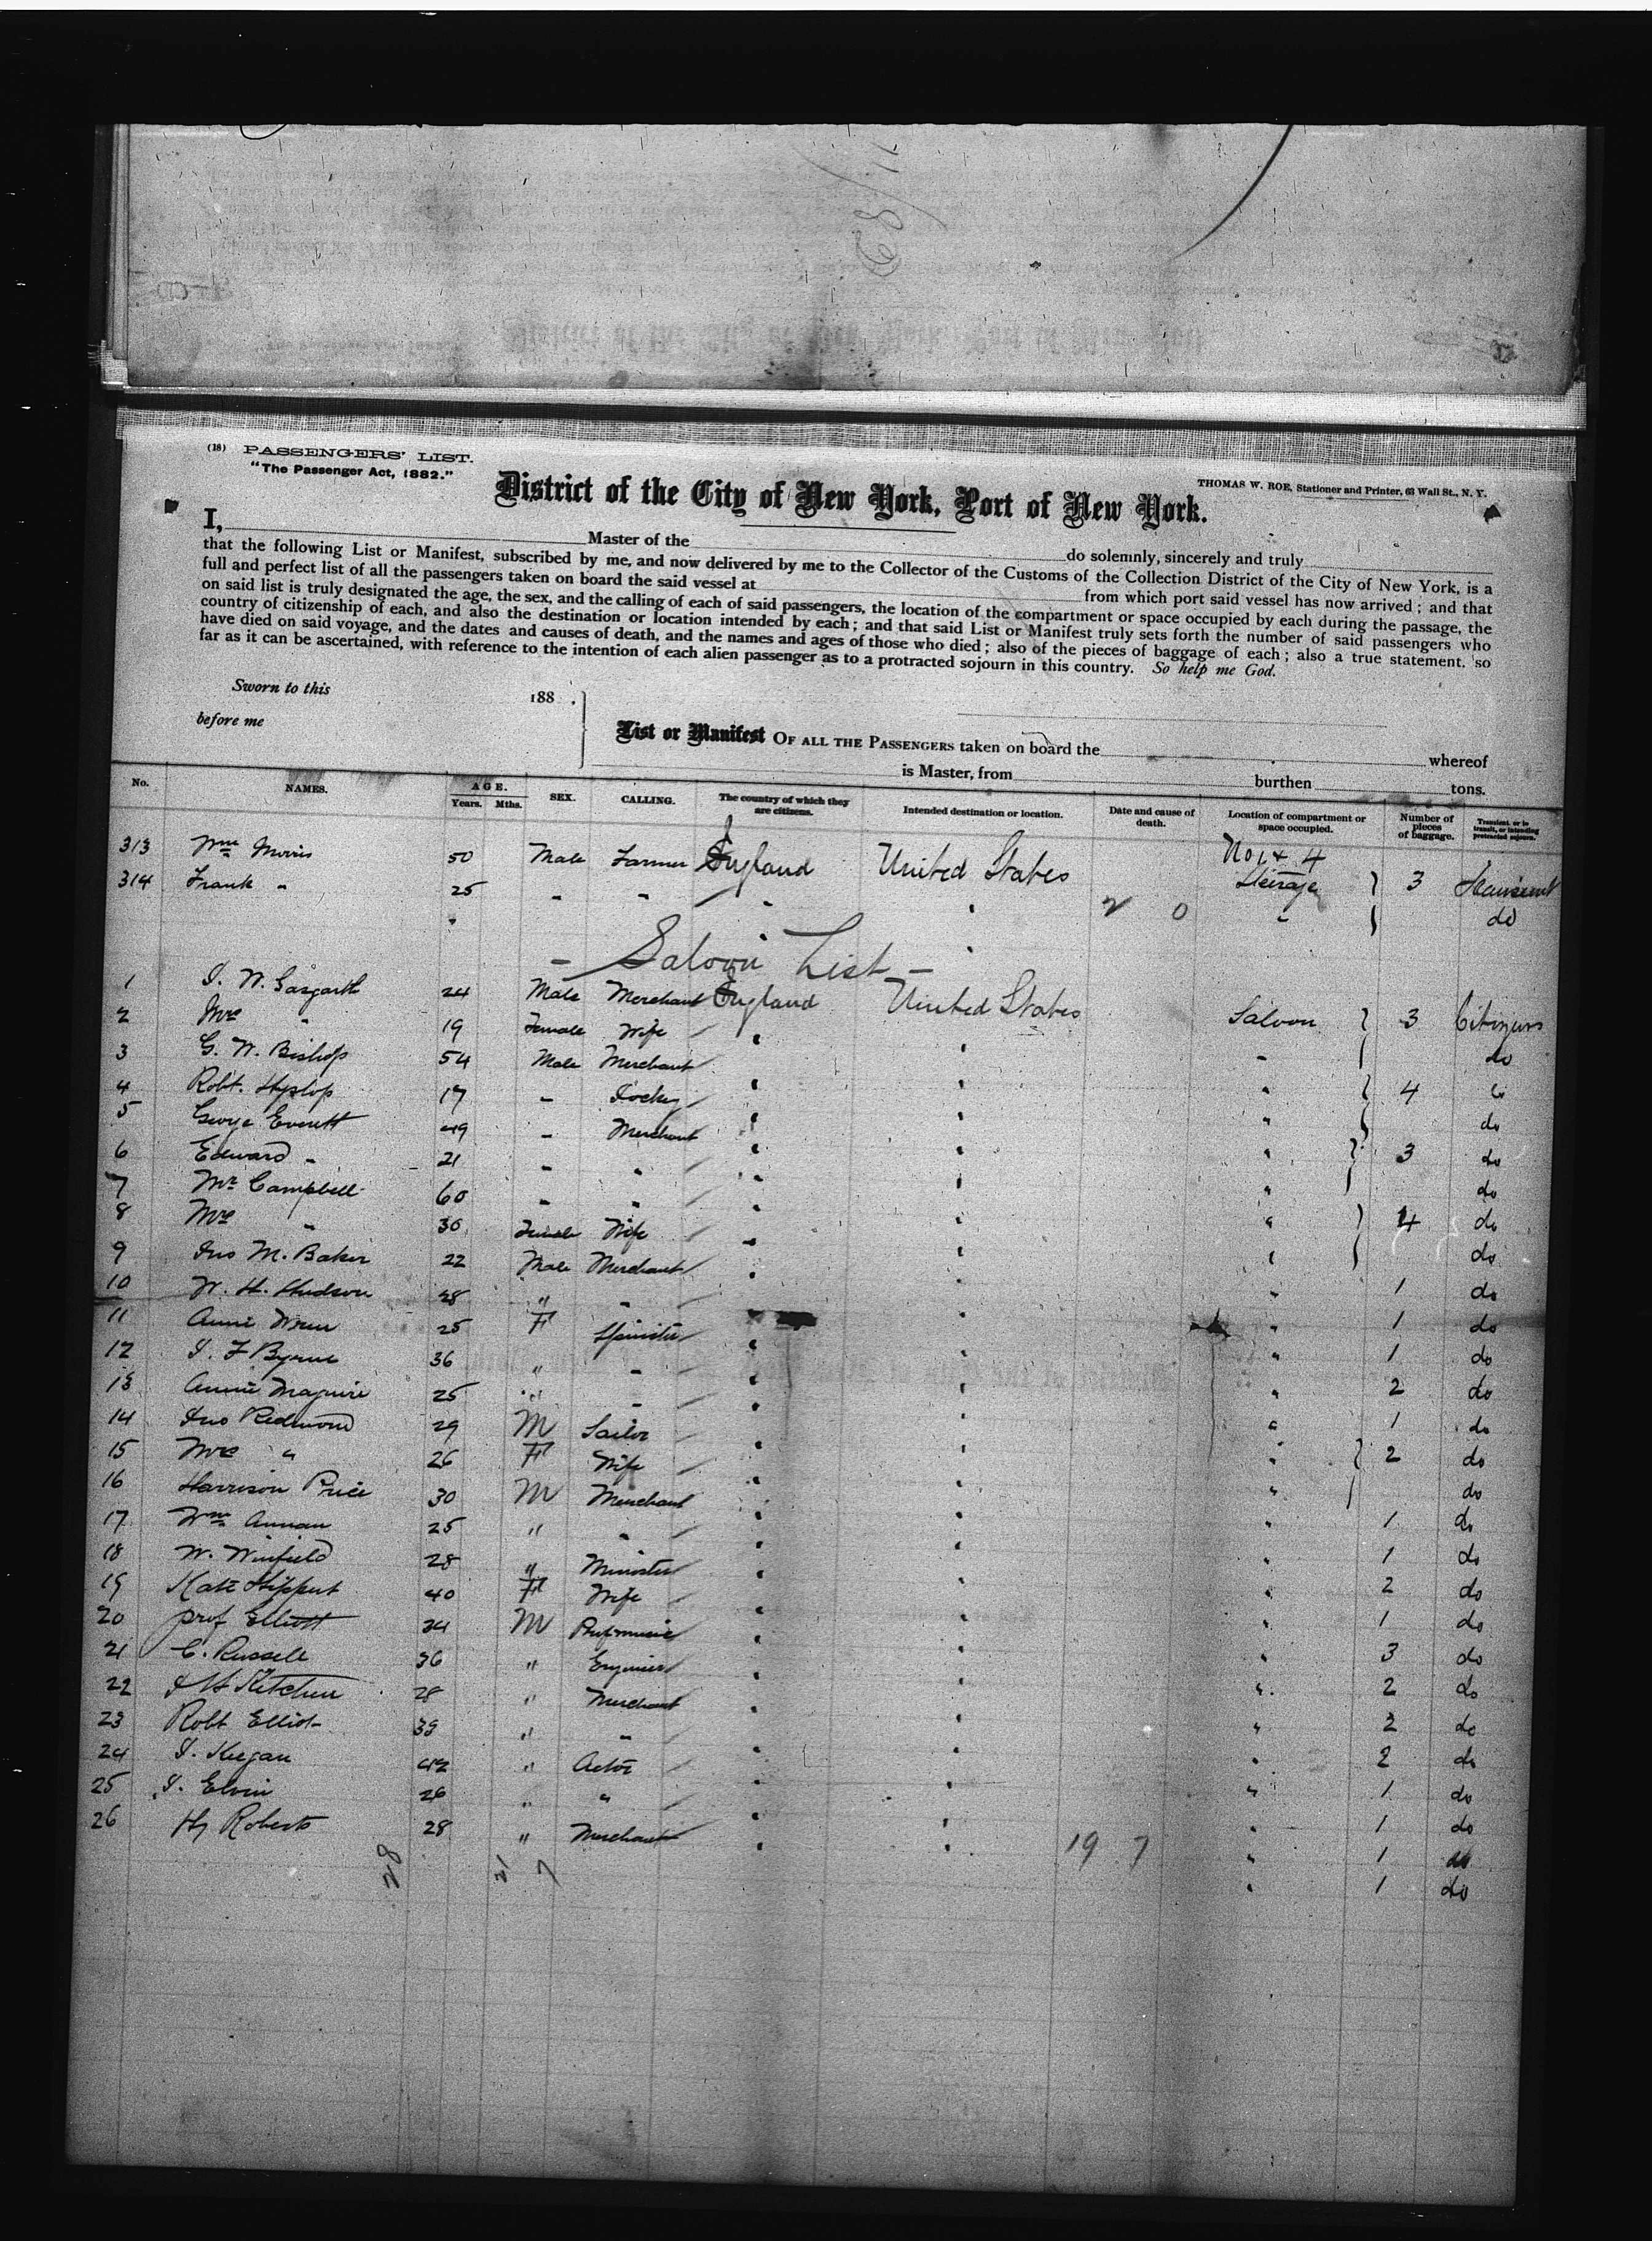 (18) PASSENGERS' LIST.
"The Passenger Act, 1882."
THOMAS W. ROE, Stationer and Printer, 63 Wall St., N. Y.
District of the City of New York, Port of New York.
I, Master of the do solemnly, sincerely and truly
that the following List or Manifest, subscribed by me, and now delivered by me to the Collector of the Customs of the Collection District of the City of New York, is a
full and perfect list of all the passengers taken on board the said vessel at from which port said vessel has now arrived; and that
on said list is truly designated the age, the sex, and the calling of each of said passengers, the location of the compartment or space occupied by each during the passage, the
country of citizenship of each, and also the destination or location intended by each; and that said List or Manifest truly sets forth the number of said passengers who
have died on said voyage, and the dates and causes of death, and the names and ages of those who died; also of the pieces of baggage of each; also a true statement, so
far as it can be ascertained, with reference to the intention of each alien passenger as to a protracted sojourn in this country. So help me God.
Sworn to this 188 .
before me
List or Manifest OF ALL THE PASSENGERS taken on board the whereof
is Master, from burthen tons.
No. NAMES. AGE. Years. Mths. SEX. CALLING. The country of which they are citizens. Intended destination or location. Date and cause of death. Location of compartment or space occupied. Number of pieces of baggage. Transient, or in transit, or intending protracted sojourn.
No 1 & 4
313 Wm Morris 50 Male Farmer England United States Steerage 3 Transient
314 Frank " 25 " " " " 2 0 " do
- Saloon List -
1 24 Male Merchant England United States Saloon 3 Citizens
2 Mrs " 19 Female Wife " " " do
3 G. W. Bishop 54 Male Merchant " " " 4 "
4 Robt. Hyslop 17 " Jockey " " " do
5 George Everett 49 " Merchant " " " 3 do
6 Edward " 21 " " " " " do
7 Mr Campbell 60 " " " " " 4 do
8 Mrs " 30 Female Wife " " " do
9 Jno M. Baker 22 Male Merchant " " " 1 do
10 W. H. Hudson 28 " " " " " 1 do
11 Annie Wren 25 F Spinster " " " 1 do
12 J. F Byrne 36 " " " " " 2 do
13 Annie Maguire 25 " " " " " 1 do
14 Jno Redmond 29 M Sailor " " " 2 do
15 Mrs " 26 F Wife " " " do
16 Harrison Price 30 M Merchant " " " 1 do
17 Wm Annan 25 " " " " " 1 do
18 W. Winfield 28 " Minister " " " 2 do
19 Kate 40 F Wife " " " 1 do
20 prof Elliott 34 M Prof music " " " 3 do
21 C. Russell 36 " Engineer " " " 2 do
22 Kitchen 28 " Merchant " " " 2 do
23 Robt Elliot 39 " " " " " 2 do
24 J. Keegan 42 " Actor " " " 1 do
25 J. Elvin 26 " " " " " 1 do
26 Hy Roberts 28 " Merchant " " 19 7 " 1 do
28 21 7 " 1 do